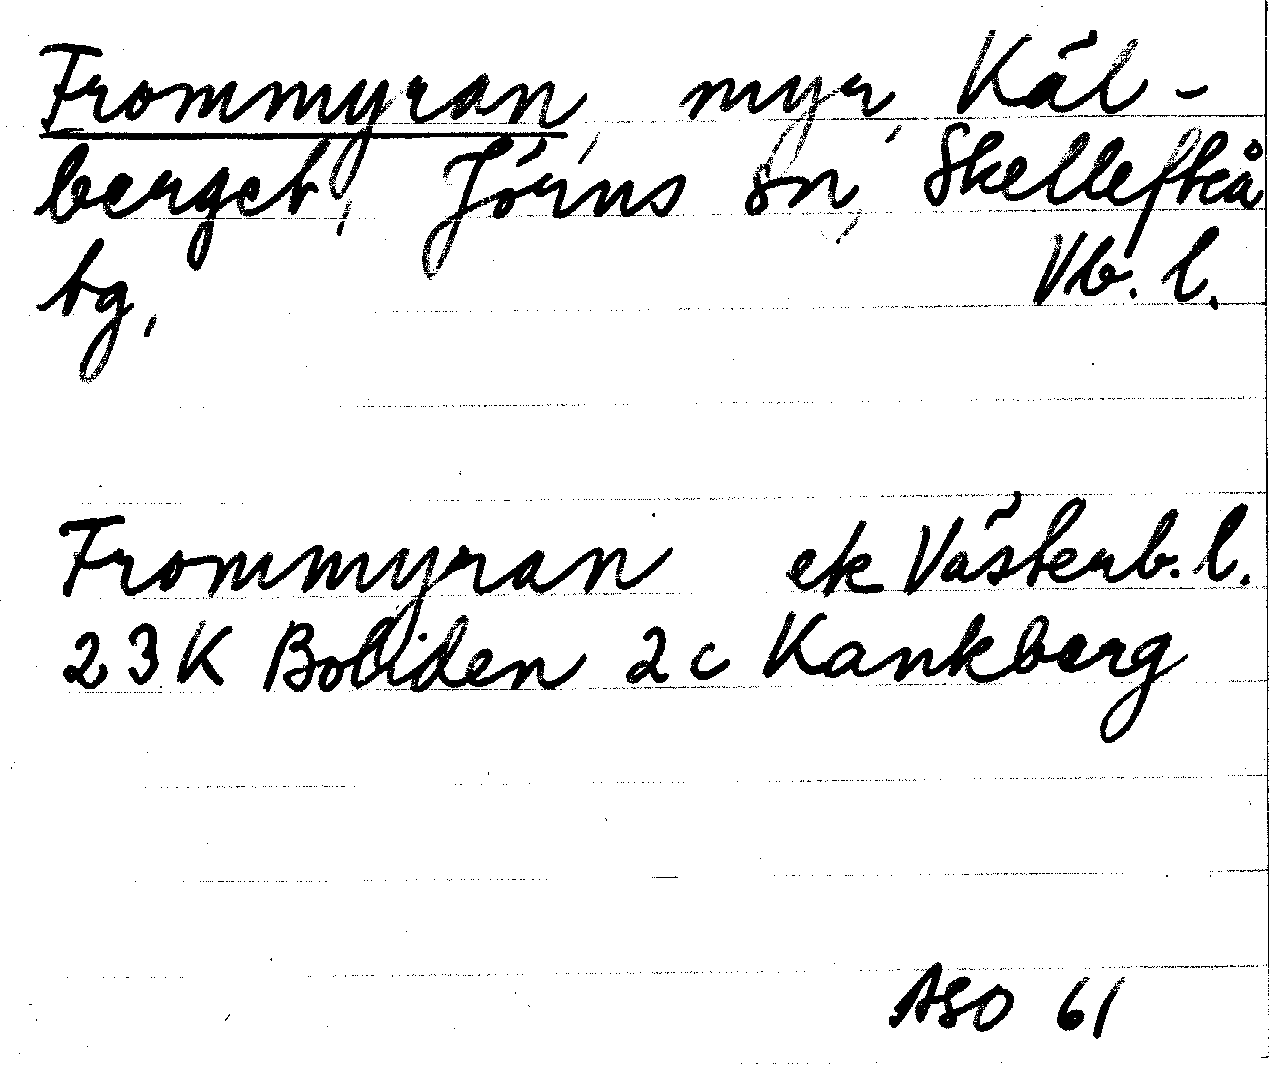 Frommyran, myr, Käl-
berget, Jörns sn, Skellefteå
tg, Vb. l.
Frommyran ek Västerb. l.
23K Boliden 2c Kankberg
ASO 61